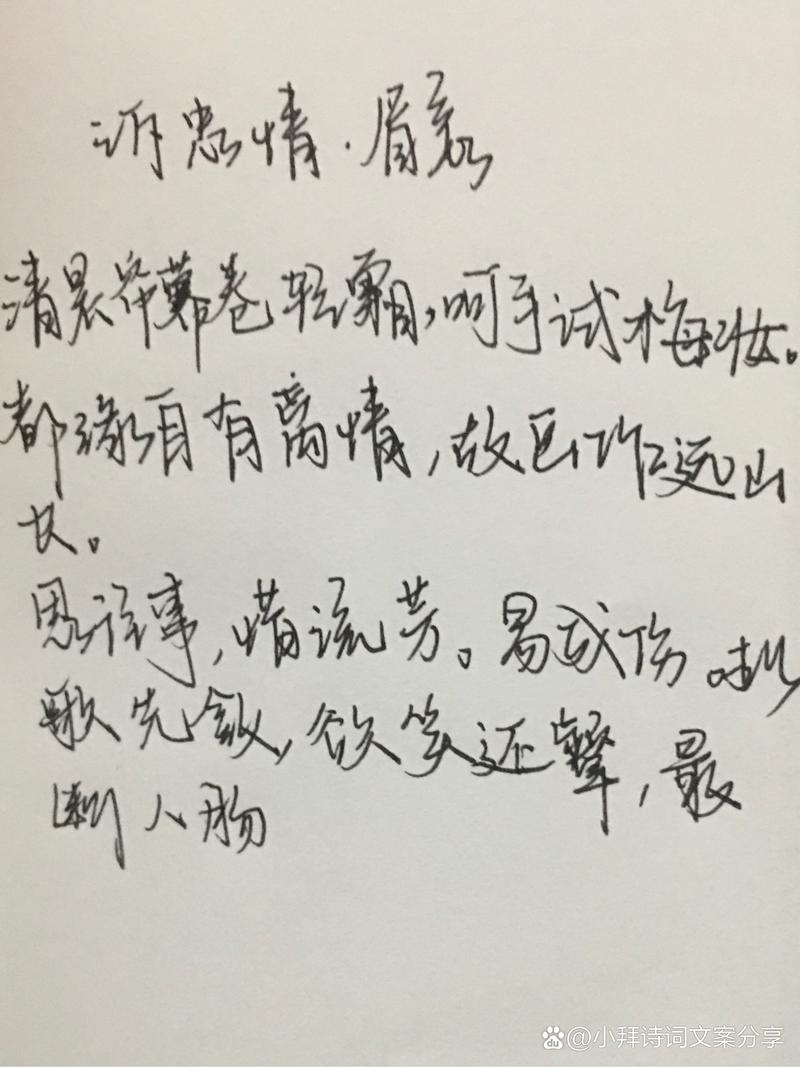 诉衷情·眉意
清晨帘幕卷轻霜,呵手试梅妆。
都缘自有离情,故画作远山
长。
思往事,惜流芳。易成伤
歌先敛,欲笑还颦,最
断人肠
@小拜诗词文案分享